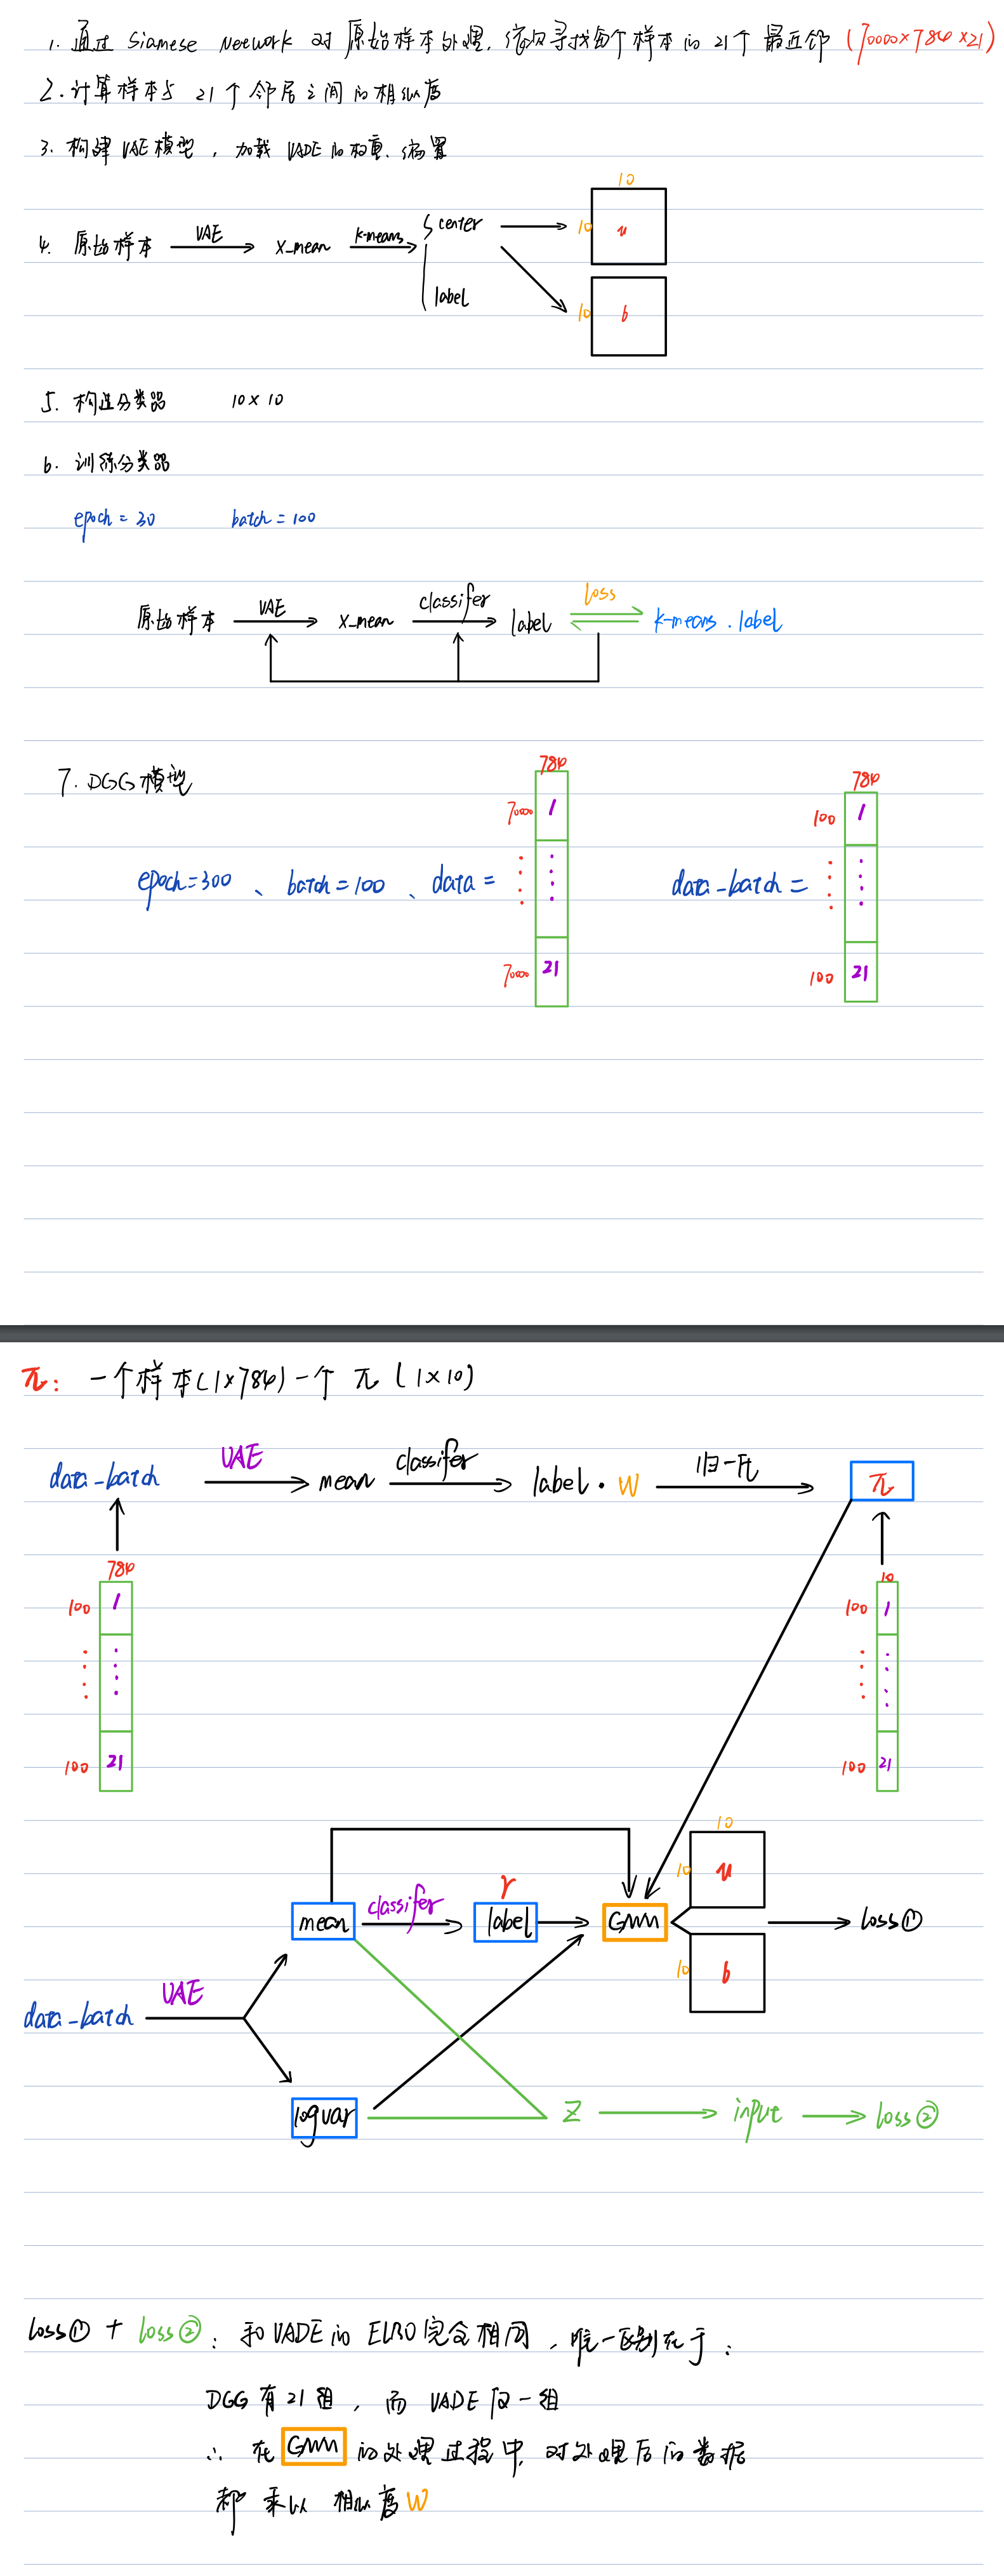 1. 通过 Siamese Network 对 原始样本处理, 依次寻找每个样本的 21个 最近邻 (70000×784×21)
2. 计算样本与 21个邻居之间的相似度
3. 构建VAE模型, 加载 VADE的权重、偏置
4. 原始样本 VAE x_mean k-means { center label
10
10 u
10 b
5. 构造分类器 10×10
6. 训练分类器
epoch = 30 batch = 100
原始样本 VAE x_mean classifer label loss k-means.label
7. DGG模型
epoch=300、batch=100、data=
784
70000 1
70000 21
data-batch=
784
100 1
100 21
π: 一个样本(1×784)一个 π (1×10)
data-batch VAE mean classifer label · W 归一化 π
784
100 1
100 21
10
100 1
100 21
10
10 u
mean classifer γ label GMM loss①
10 b
data-batch VAE
logvar Z input loss②
loss① + loss②: 和VADE的 ELBO完全相同, 唯一区别在于:
DGG有21组, 而 VADE仅一组
∴ 在 GMM 的处理过程中, 对处理后的数据
都 乘以 相似度W